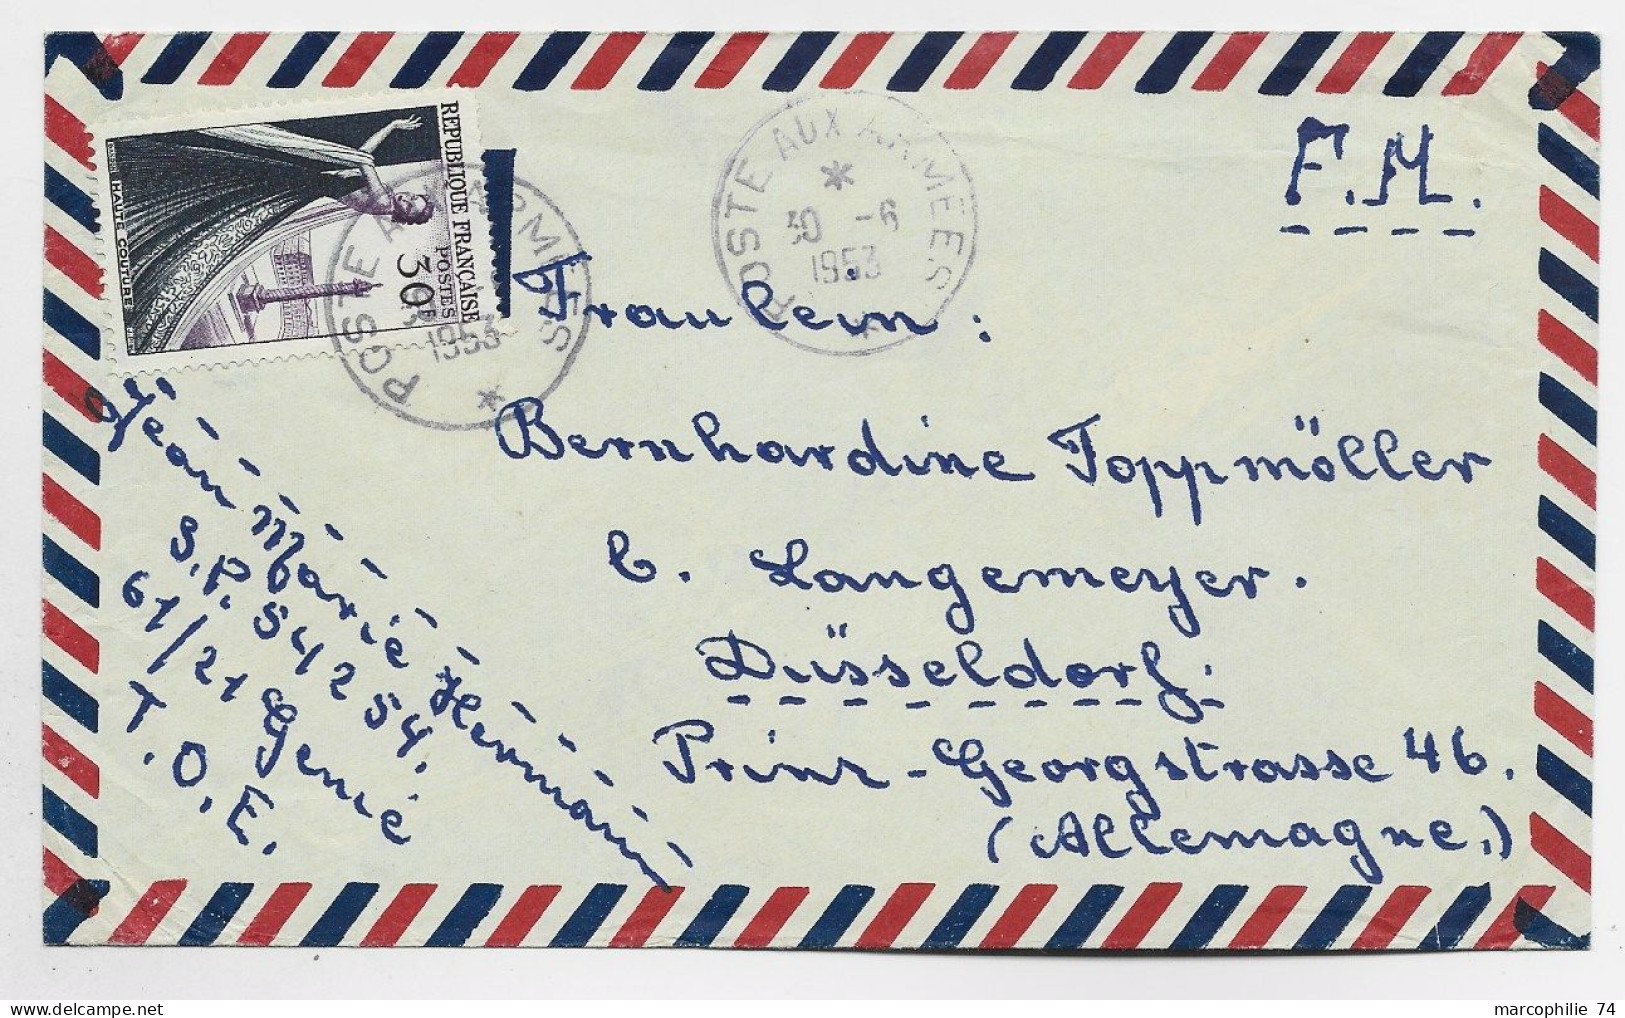 F.M.
RÉPUBLIQUE FRANÇAISE
POSTES
30F
HAUTE COUTURE
POSTE AUX ARMÉES
1953
POSTE AUX ARMÉES
30 -6
1953
Fraulein :
Bernhardine Toppmöller
b. Langemeyer.
Düsseldorf.
Prinz-Georgstrasse 46.
(Allemagne.)
Jean Marie Hermann
S.P. 54254.
61/21 Genie
T.O.E.
marcophilie 74